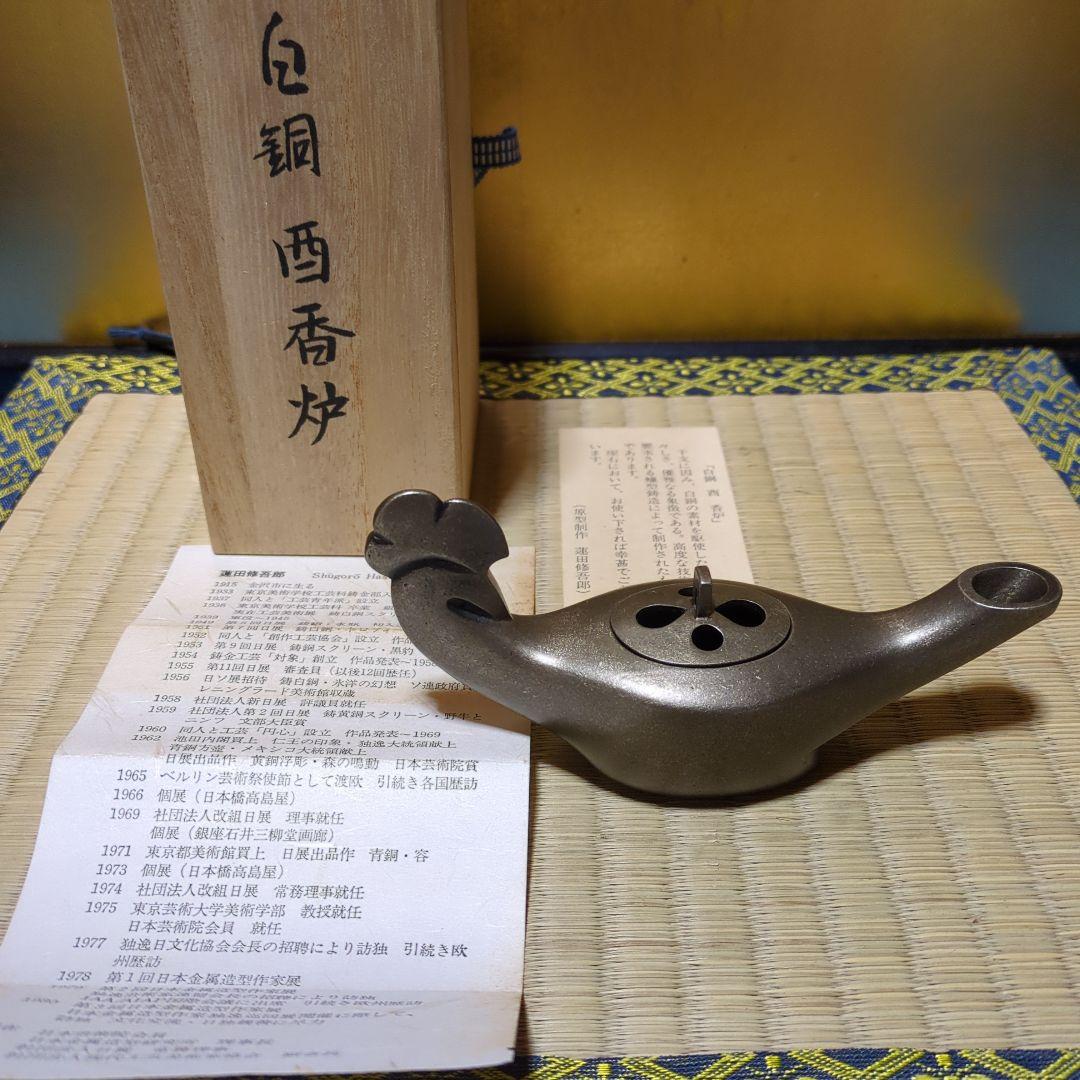 白銅 酉香炉
「白銅 酉 香炉」
干支に因み、白銅の素材を駆使した
々しさ、優雅なる象徴である。高度な技
要求される蠟型鋳造によって制作された
であります。
座右において、お使い下されば幸甚でご
います。
（原型制作 蓮田修吾郎）
蓮田修吾郎 Shūgorō Has
1915 金沢市に生る
1933 東京美術学校工芸科鋳金部入
1937 同人と「工芸青年派」設立
1938 東京美術学校工芸科 卒業
1952 同人と「創作工芸協会」設立 作品
1953 第9回日展 鋳銅スクリーン・黒豹
1954 鋳金工芸「対象」創立 作品発表〜1958
1955 第11回日展 審査員（以後12回歴任）
1956 日ソ展招待 鋳白銅・氷洋の幻想 ソ連政府買
レニングラード美術館収蔵
1958 社団法人新日展 評議員就任
1959 社団法人第2回日展 鋳黄銅スクリーン・野牛と
ニンフ 文部大臣賞
1960 同人と工芸「円心」設立 作品発表〜1969
1962 池田内閣買上 仁王の印象・独逸大統領献上
青銅方壺・メキシコ大統領献上
日展出品作 黄銅浮彫・森の鳴動 日本芸術院賞
1965 ベルリン芸術祭使節として渡欧 引続き各国歴訪
1966 個展（日本橋高島屋）
1969 社団法人改組日展 理事就任
個展（銀座石井三柳堂画廊）
1971 東京都美術館買上 日展出品作 青銅・容
1973 個展（日本橋高島屋）
1974 社団法人改組日展 常務理事就任
1975 東京芸術大学美術学部 教授就任
日本芸術院会員 就任
1977 独逸日文化協会会長の招聘により訪独 引続き欧
州歴訪
1978 第1回日本金属造型作家展
第2回日本金属造型作家展